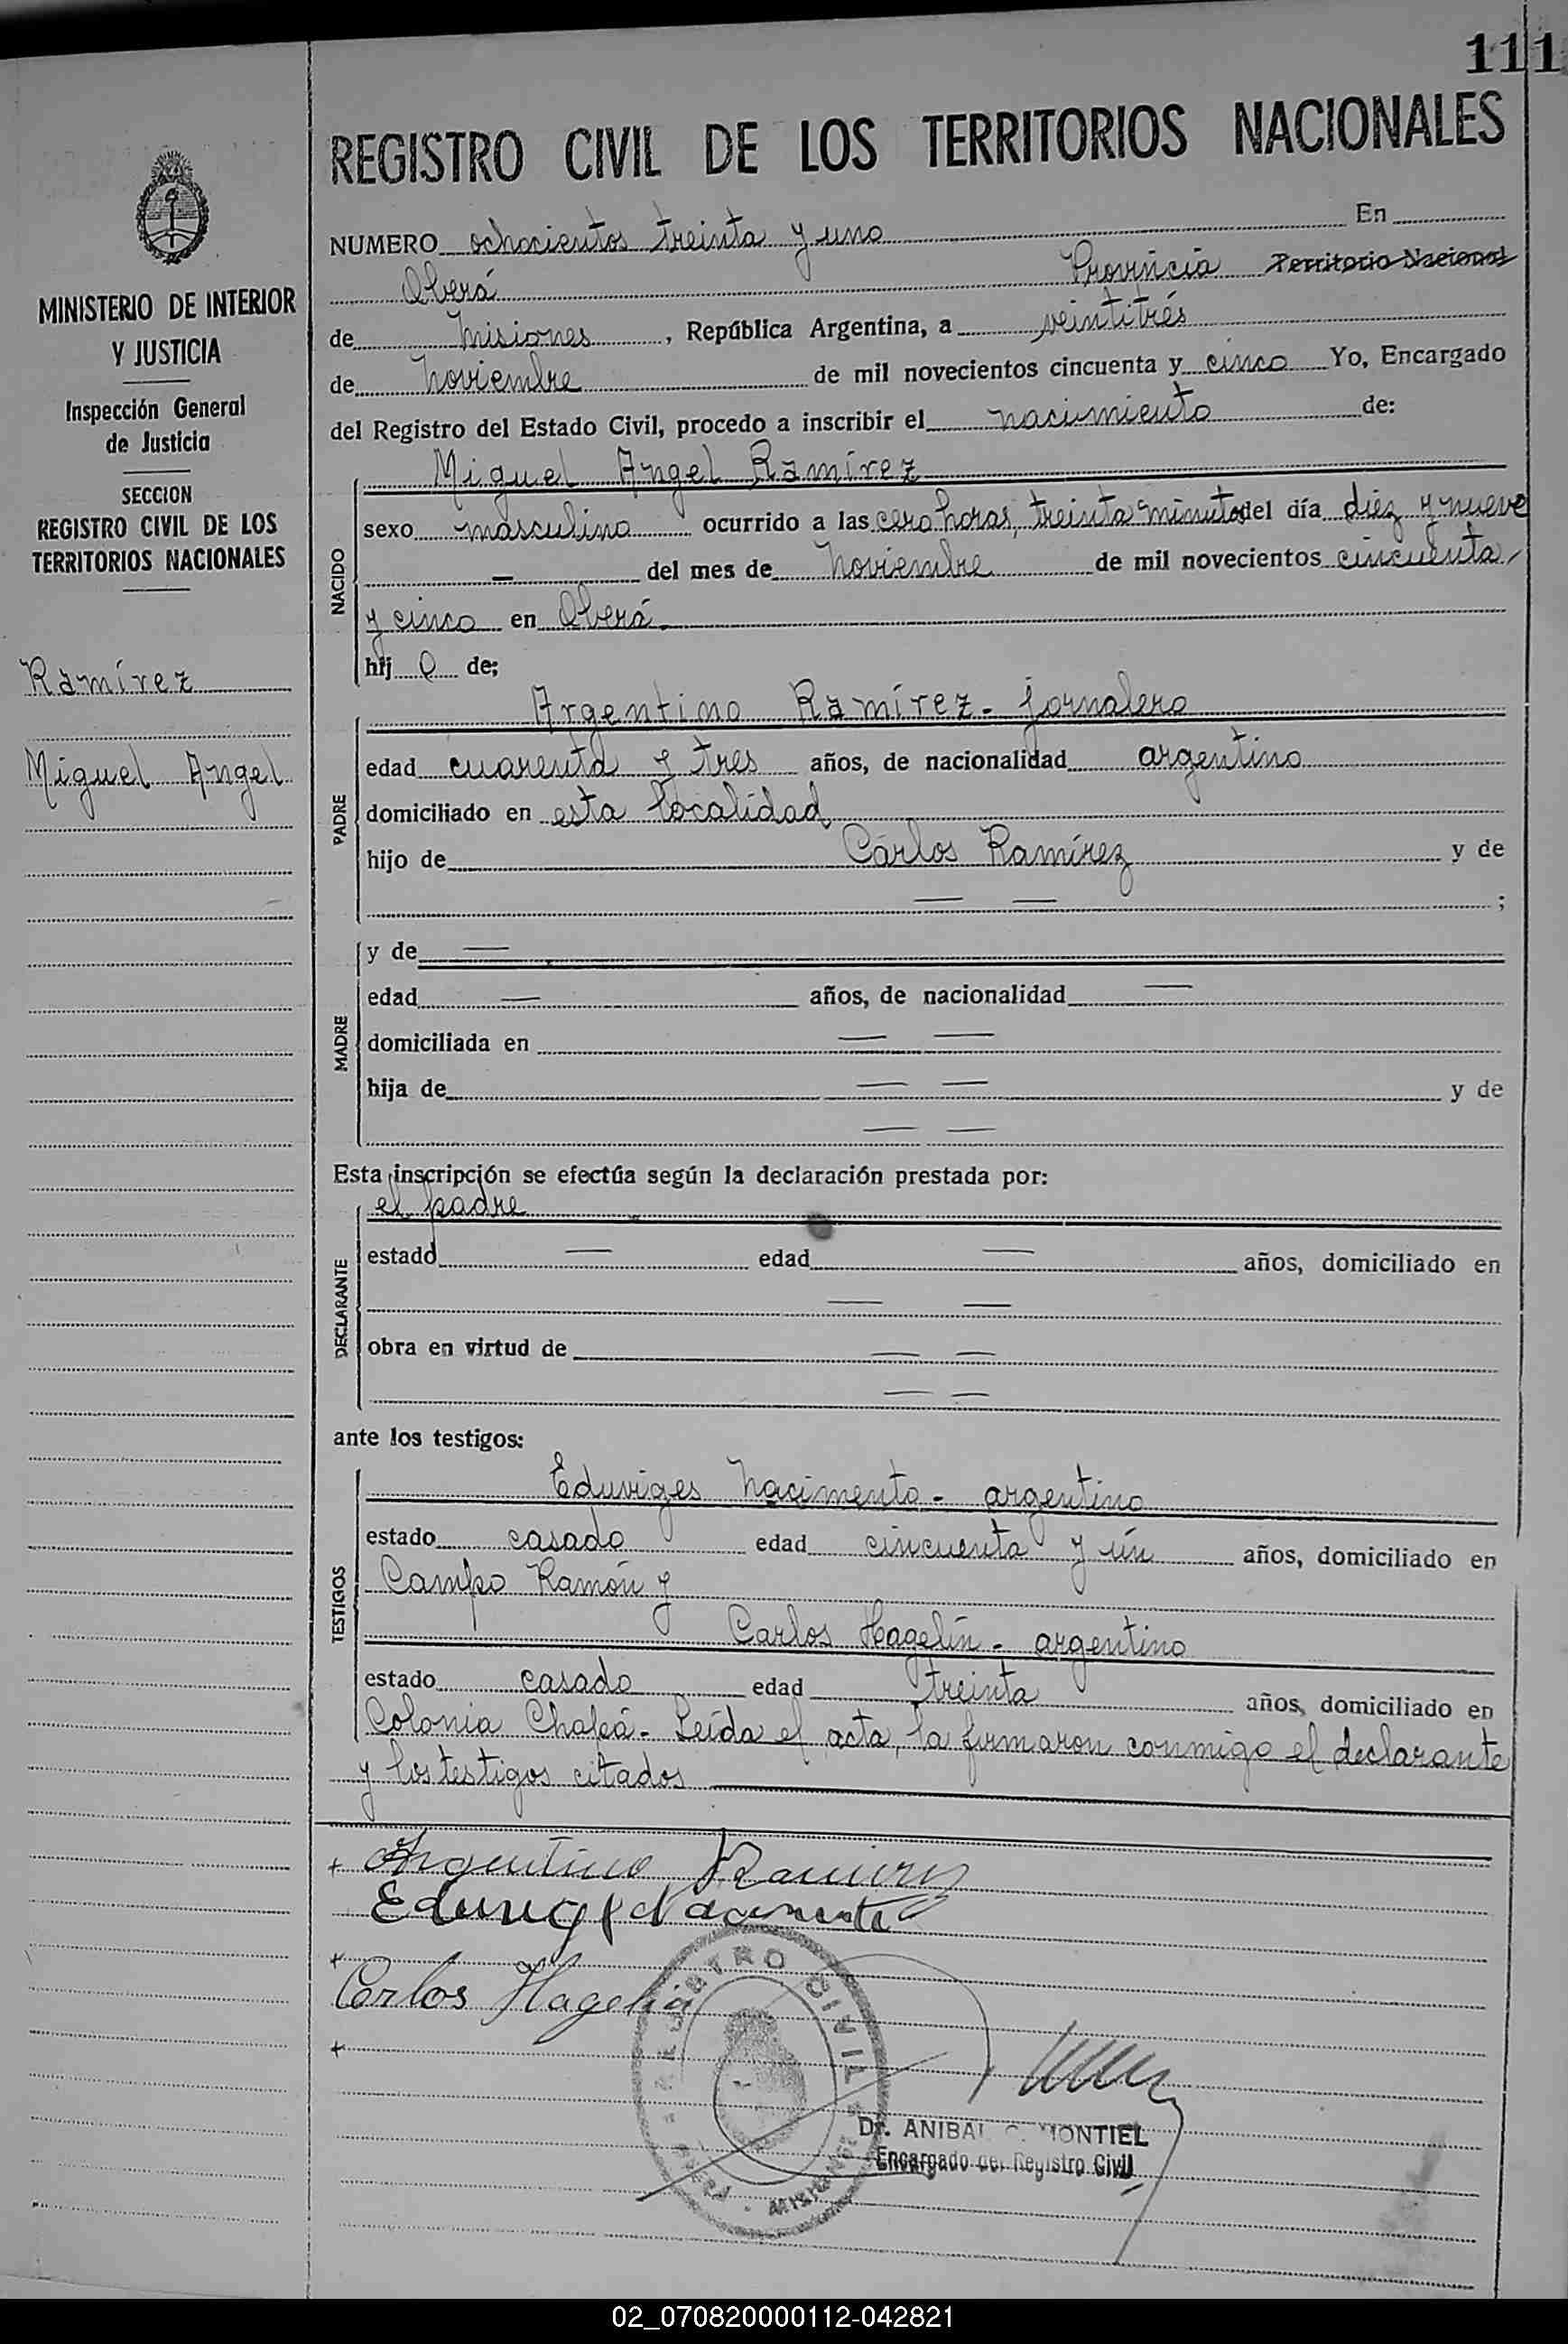 111
REGISTRO CIVIL DE LOS TERRITORIOS NACIONALES
MINISTERIO DE INTERIOR
Y JUSTICIA
Inspección General
de Justicia
SECCION
REGISTRO CIVIL DE LOS
TERRITORIOS NACIONALES
Ramírez
Miguel Angel
NUMERO ochocientos treinta y uno En
Oberá Provincia Territorio Nacional
de Misiones, República Argentina, a veintitrés
de Noviembre de mil novecientos cincuenta y cinco Yo, Encargado
del Registro del Estado Civil, procedo a inscribir el nacimiento de:
NACIDO
Miguel Angel Ramírez
sexo masculino ocurrido a las cero horas, treinta minutos del día diez y nueve
— del mes de Noviembre de mil novecientos cincuenta
y cinco en Oberá.
hij o de;
PADRE
Argentino Ramírez - jornalero
edad cuarenta y tres años, de nacionalidad argentino
domiciliado en esta localidad
hijo de Carlos Ramírez y de
— — ;
MADRE
y de —
edad — años, de nacionalidad —
domiciliada en — —
hija de — — y de
— —
Esta inscripción se efectúa según la declaración prestada por:
DECLARANTE
el padre
estado — edad — años, domiciliado en
— —
obra en virtud de — —
— —
ante los testigos:
TESTIGOS
Eduviges Nacimento - argentino
estado casado edad cincuenta y ún años, domiciliado en
Campo Ramón y
Carlos Hagelin - argentino
estado casado edad treinta años, domiciliado en
Colonia Chapá - Leída el acta, la firmaron conmigo el declarante
y los testigos citados
+ Argentino Ramirez
Eduviges Nacimento
+
Carlos Hagelin
+
REGISTRO CIVIL
OBERA - MISIONES
Dr. ANIBAL C. MONTIEL
Encargado del Registro Civil
02_070820000112-042821